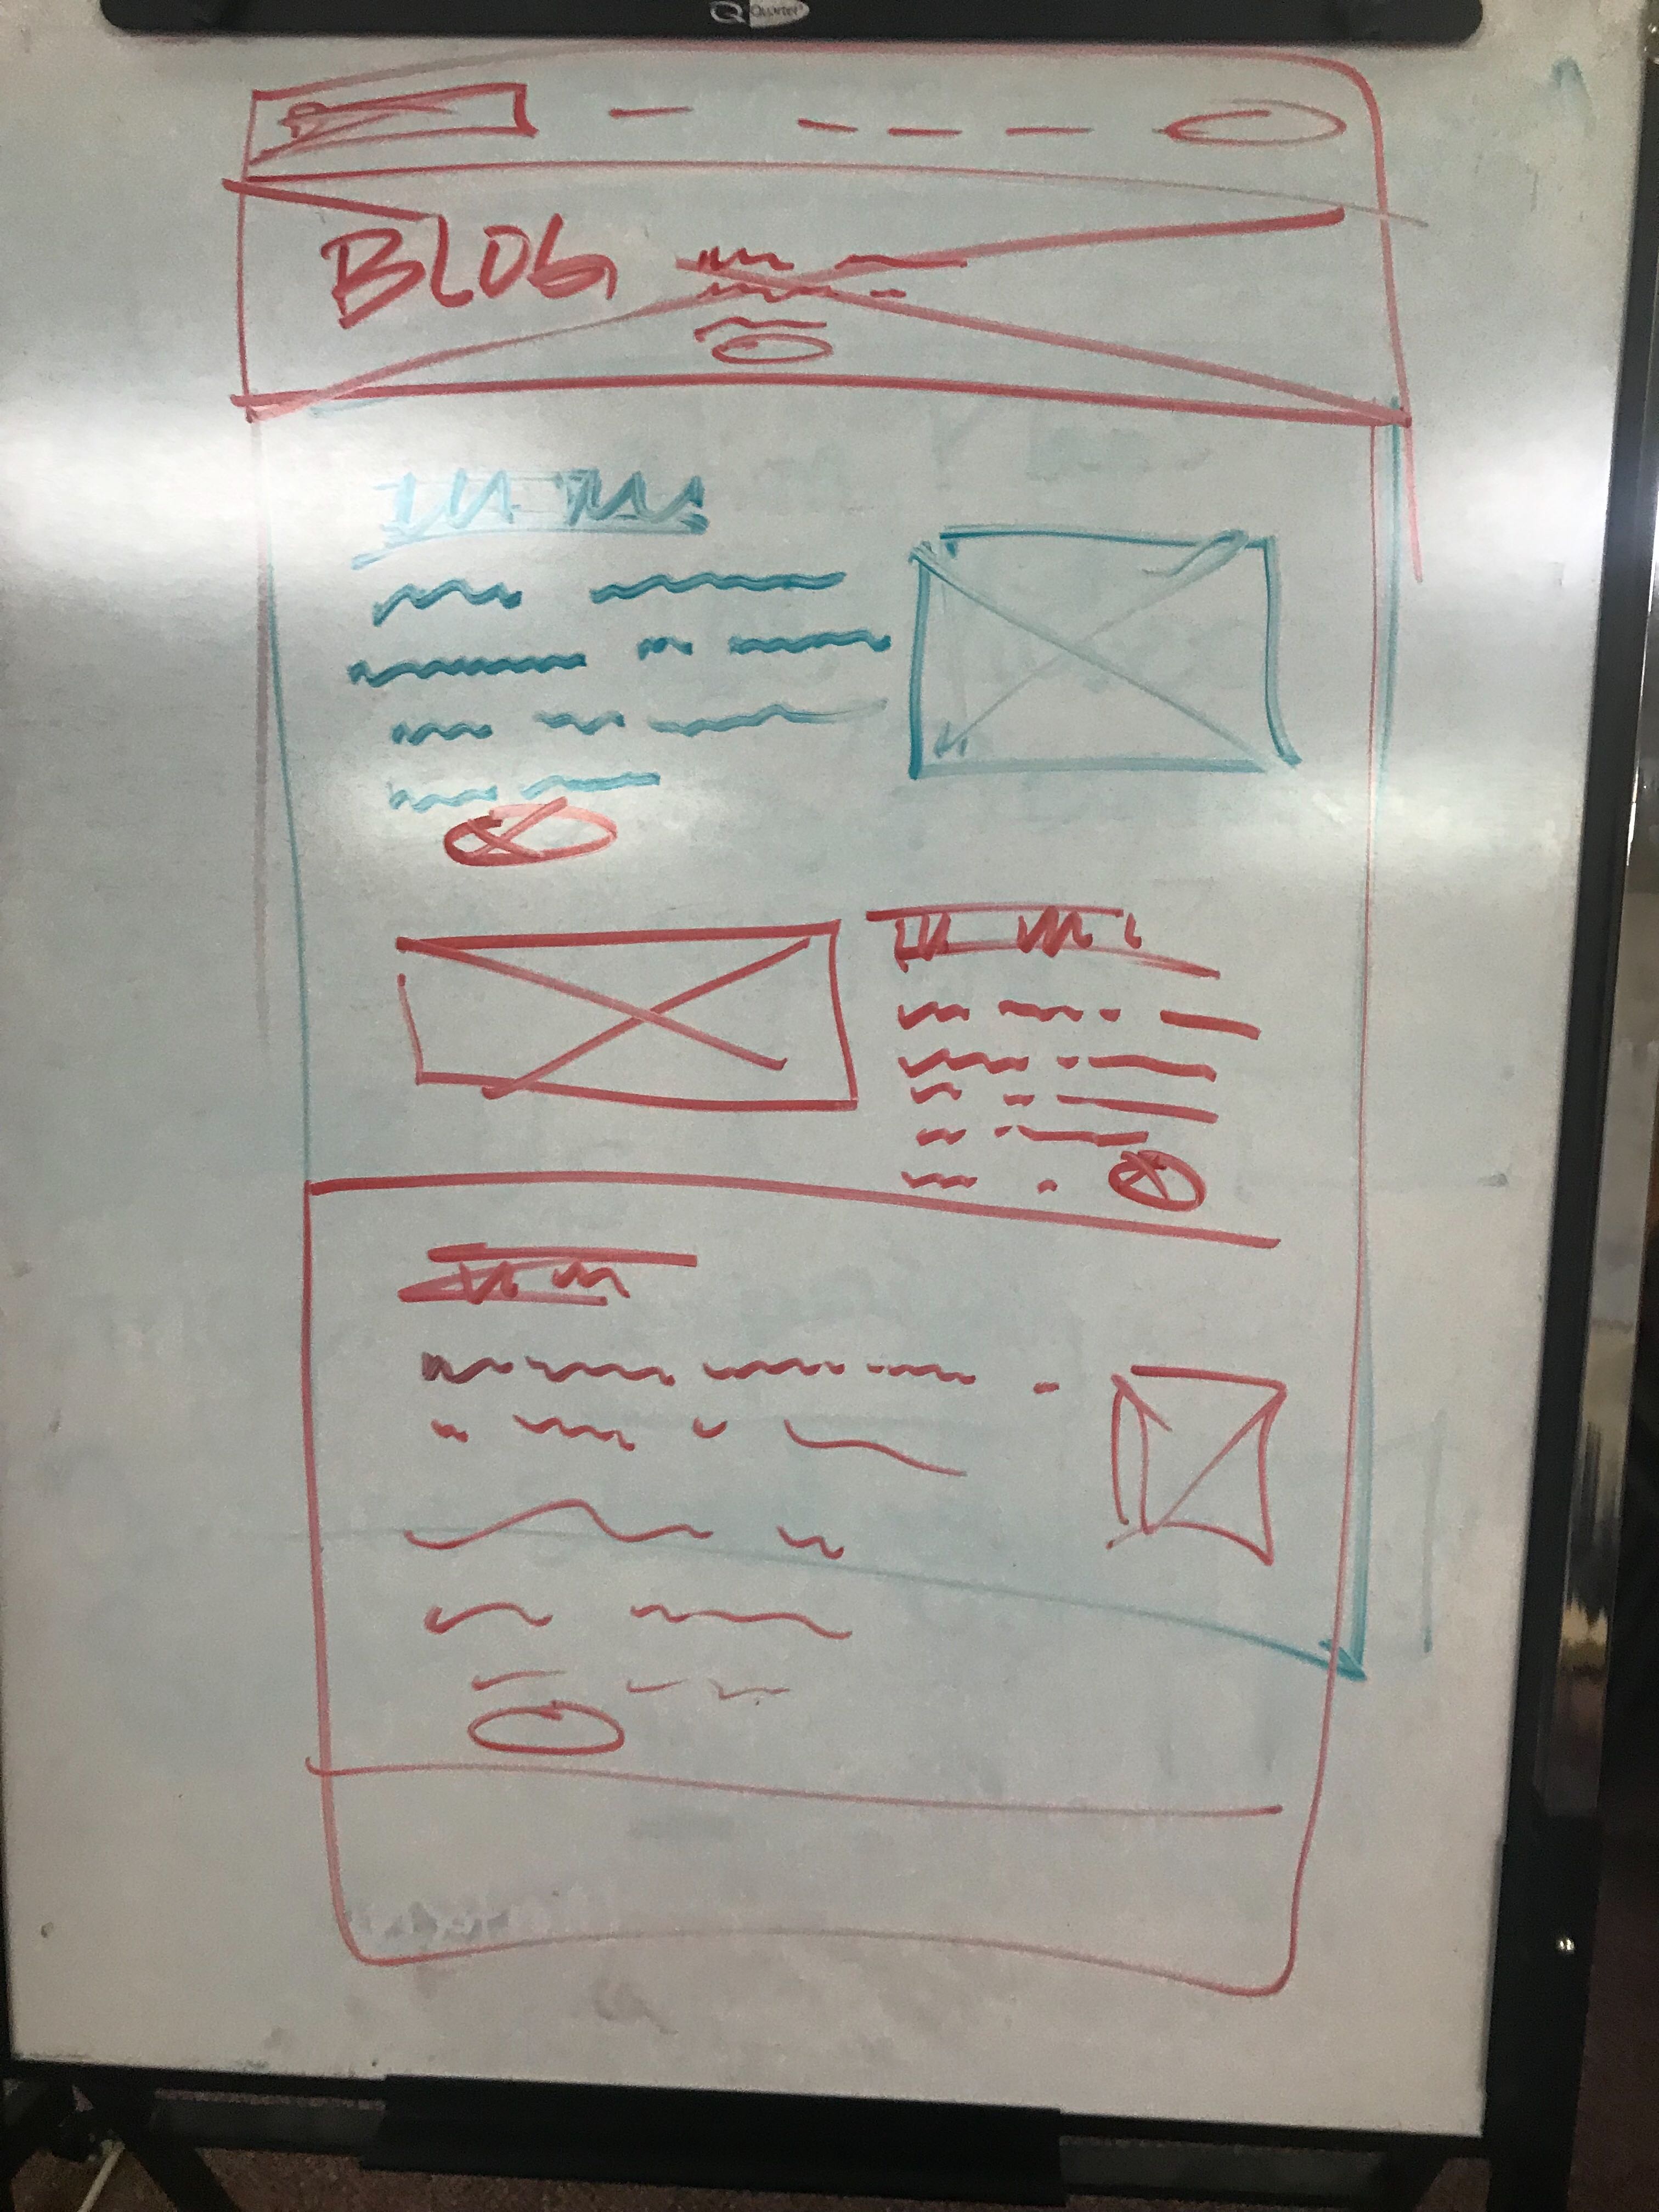 Quartet
BLOG